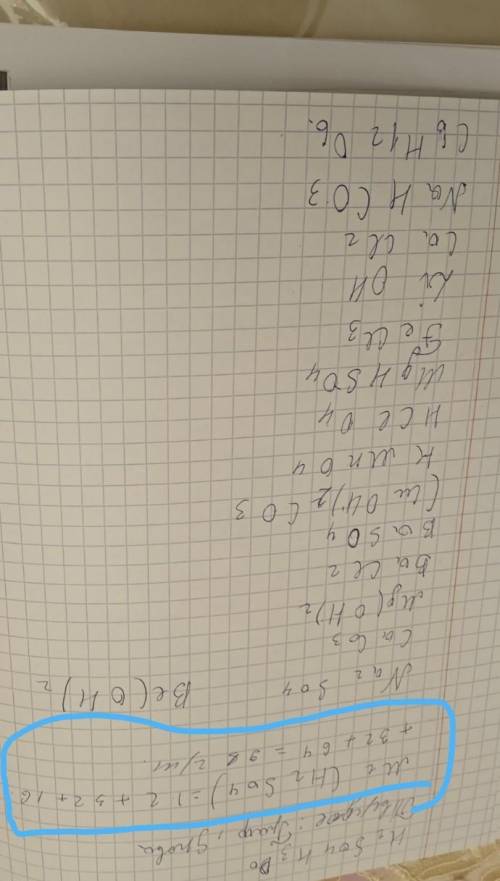 H2 SO4 H3 PO
Твердое: дрова
Mr (H2 SO4) = 1 2 + 32 + 16
+ 32 + 64 = 98 г/м.
Na2 SO4 Be(OH)2
CaCO3
Mg(OH)2
BaCl2
BaSO4
(CuOH)2 CO3
KMnO4
HClO4
MgHSO4
FeCl3
LiOH
CaCl2
NaHCO3
C6H12O6.